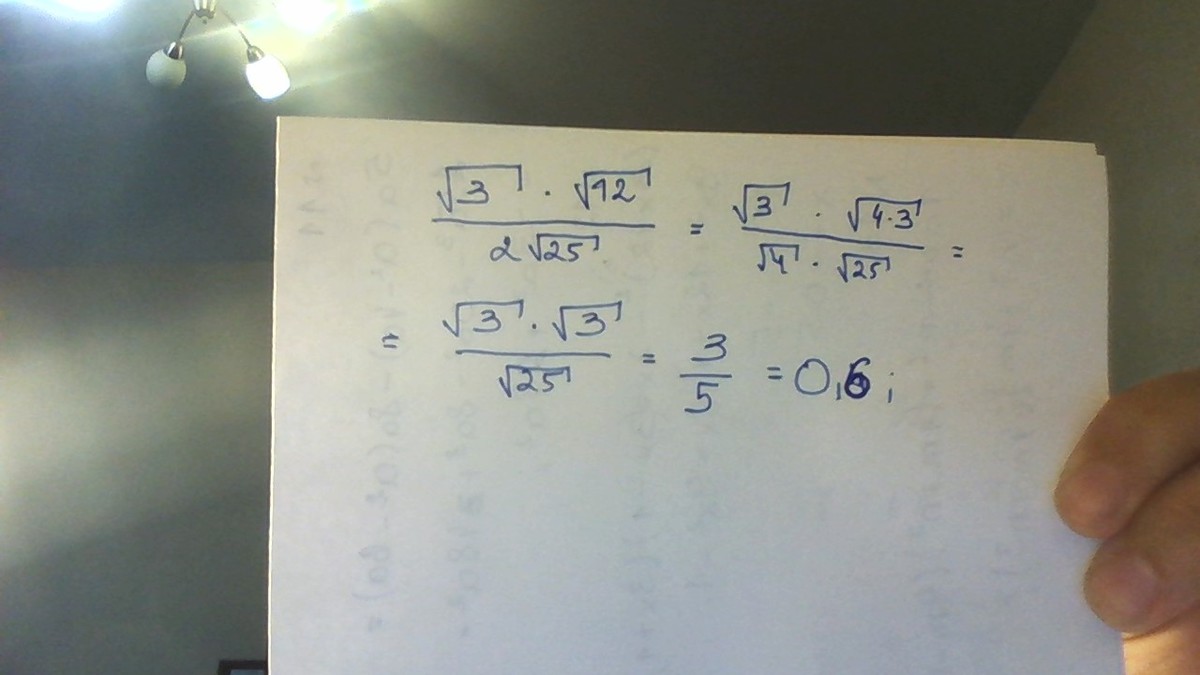 √3 · √12 / 2√25 = √3 · √4·3 / √4 · √25 =
= √3 · √3 / √25 = 3/5 = 0,6;